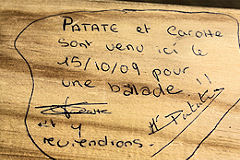 PATATE et Carotte
sont venu ici le
15/10/09 pour
une balade !!
et y
reviendrons.